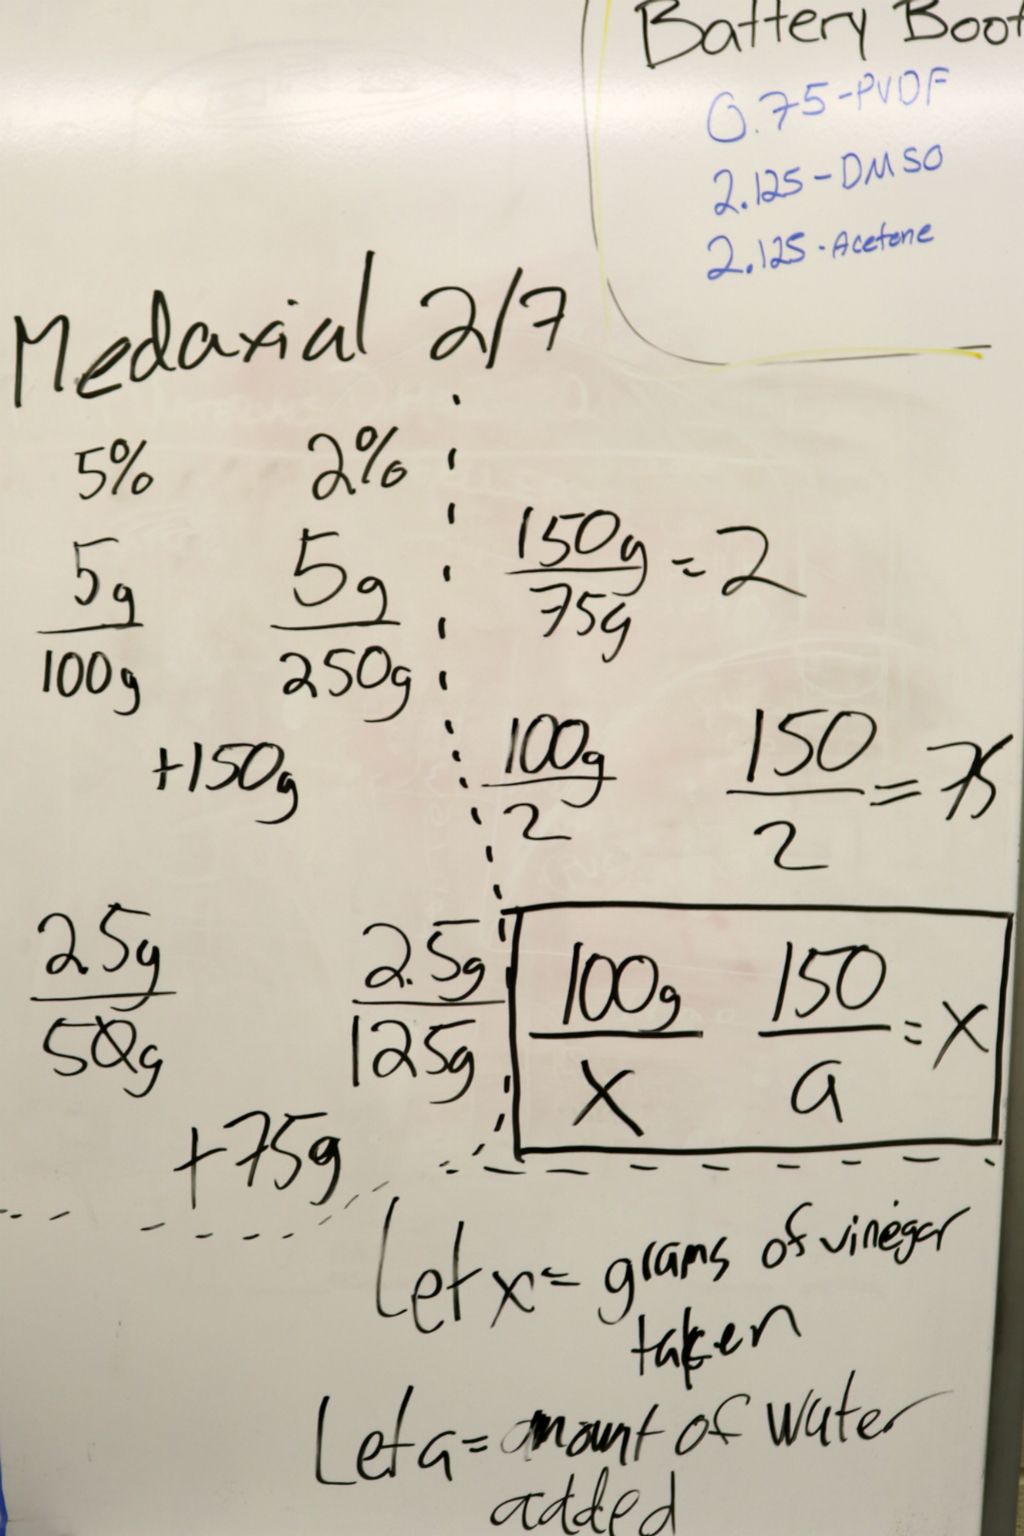 Battery Boot
0.75-PVDF
2.125-DMSO
2.125-Acetone
Medaxial 2/7
5% 2%
5g/100g 5g/250g
+150g
2.5g/50g 2.5g/125g
+75g
150g/75g = 2
100g/2 150/2 = 75
100g/x 150/a = x
Let x = grams of vinegar
taken
Let a = amount of water
added